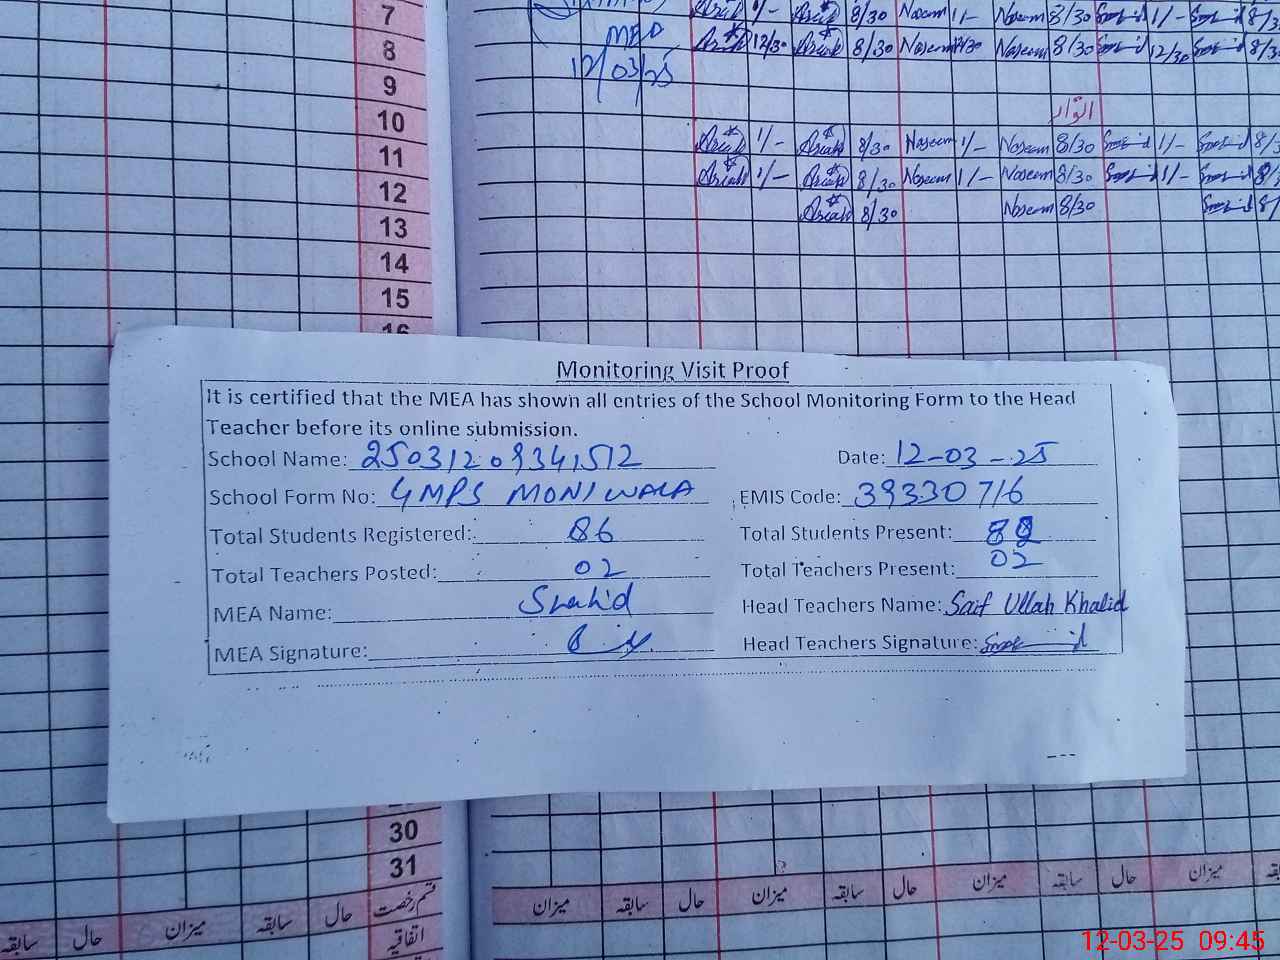 7
8
9
10
11
12
13
14
15
16
MEO
12/03/25
1/- 8/30 Naseem 1/- Naseem 8/30 1/-
12/30 8/30 Naseem 12/30 Naseem 8/30 12/30
اتوار
1/- 8/30 Naseem 1/- Naseem 8/30 1/-
1/- 8/30 Naseem 1/- Naseem 8/30 1/-
8/30 Naseem 8/30
Monitoring Visit Proof
It is certified that the MEA has shown all entries of the School Monitoring Form to the Head
Teacher before its online submission.
School Name: 25031209341512 Date: 12-03-25
School Form No: GMPS MONIWALA EMIS Code: 39330716
Total Students Registered: 86 Total Students Present:
Total Teachers Posted: 02 Total Teachers Present: 02
MEA Name: Shahid Head Teachers Name: Saif Ullah Khalid
MEA Signature: Head Teachers Signature:
30
31
سابقہ حال میزان سابقہ حال قسم رخصت
اتفاقیہ
میزان سابقہ حال میزان سابقہ حال میزان سابقہ حال میزان
12-03-25 09:45